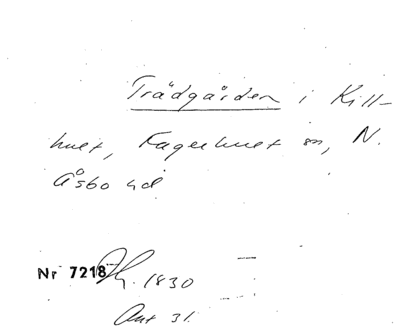 Trädgården i Kill-
hult, Fagerhult sn, N.
Åsbo hd
Nr 7218 1830
Ant 31.